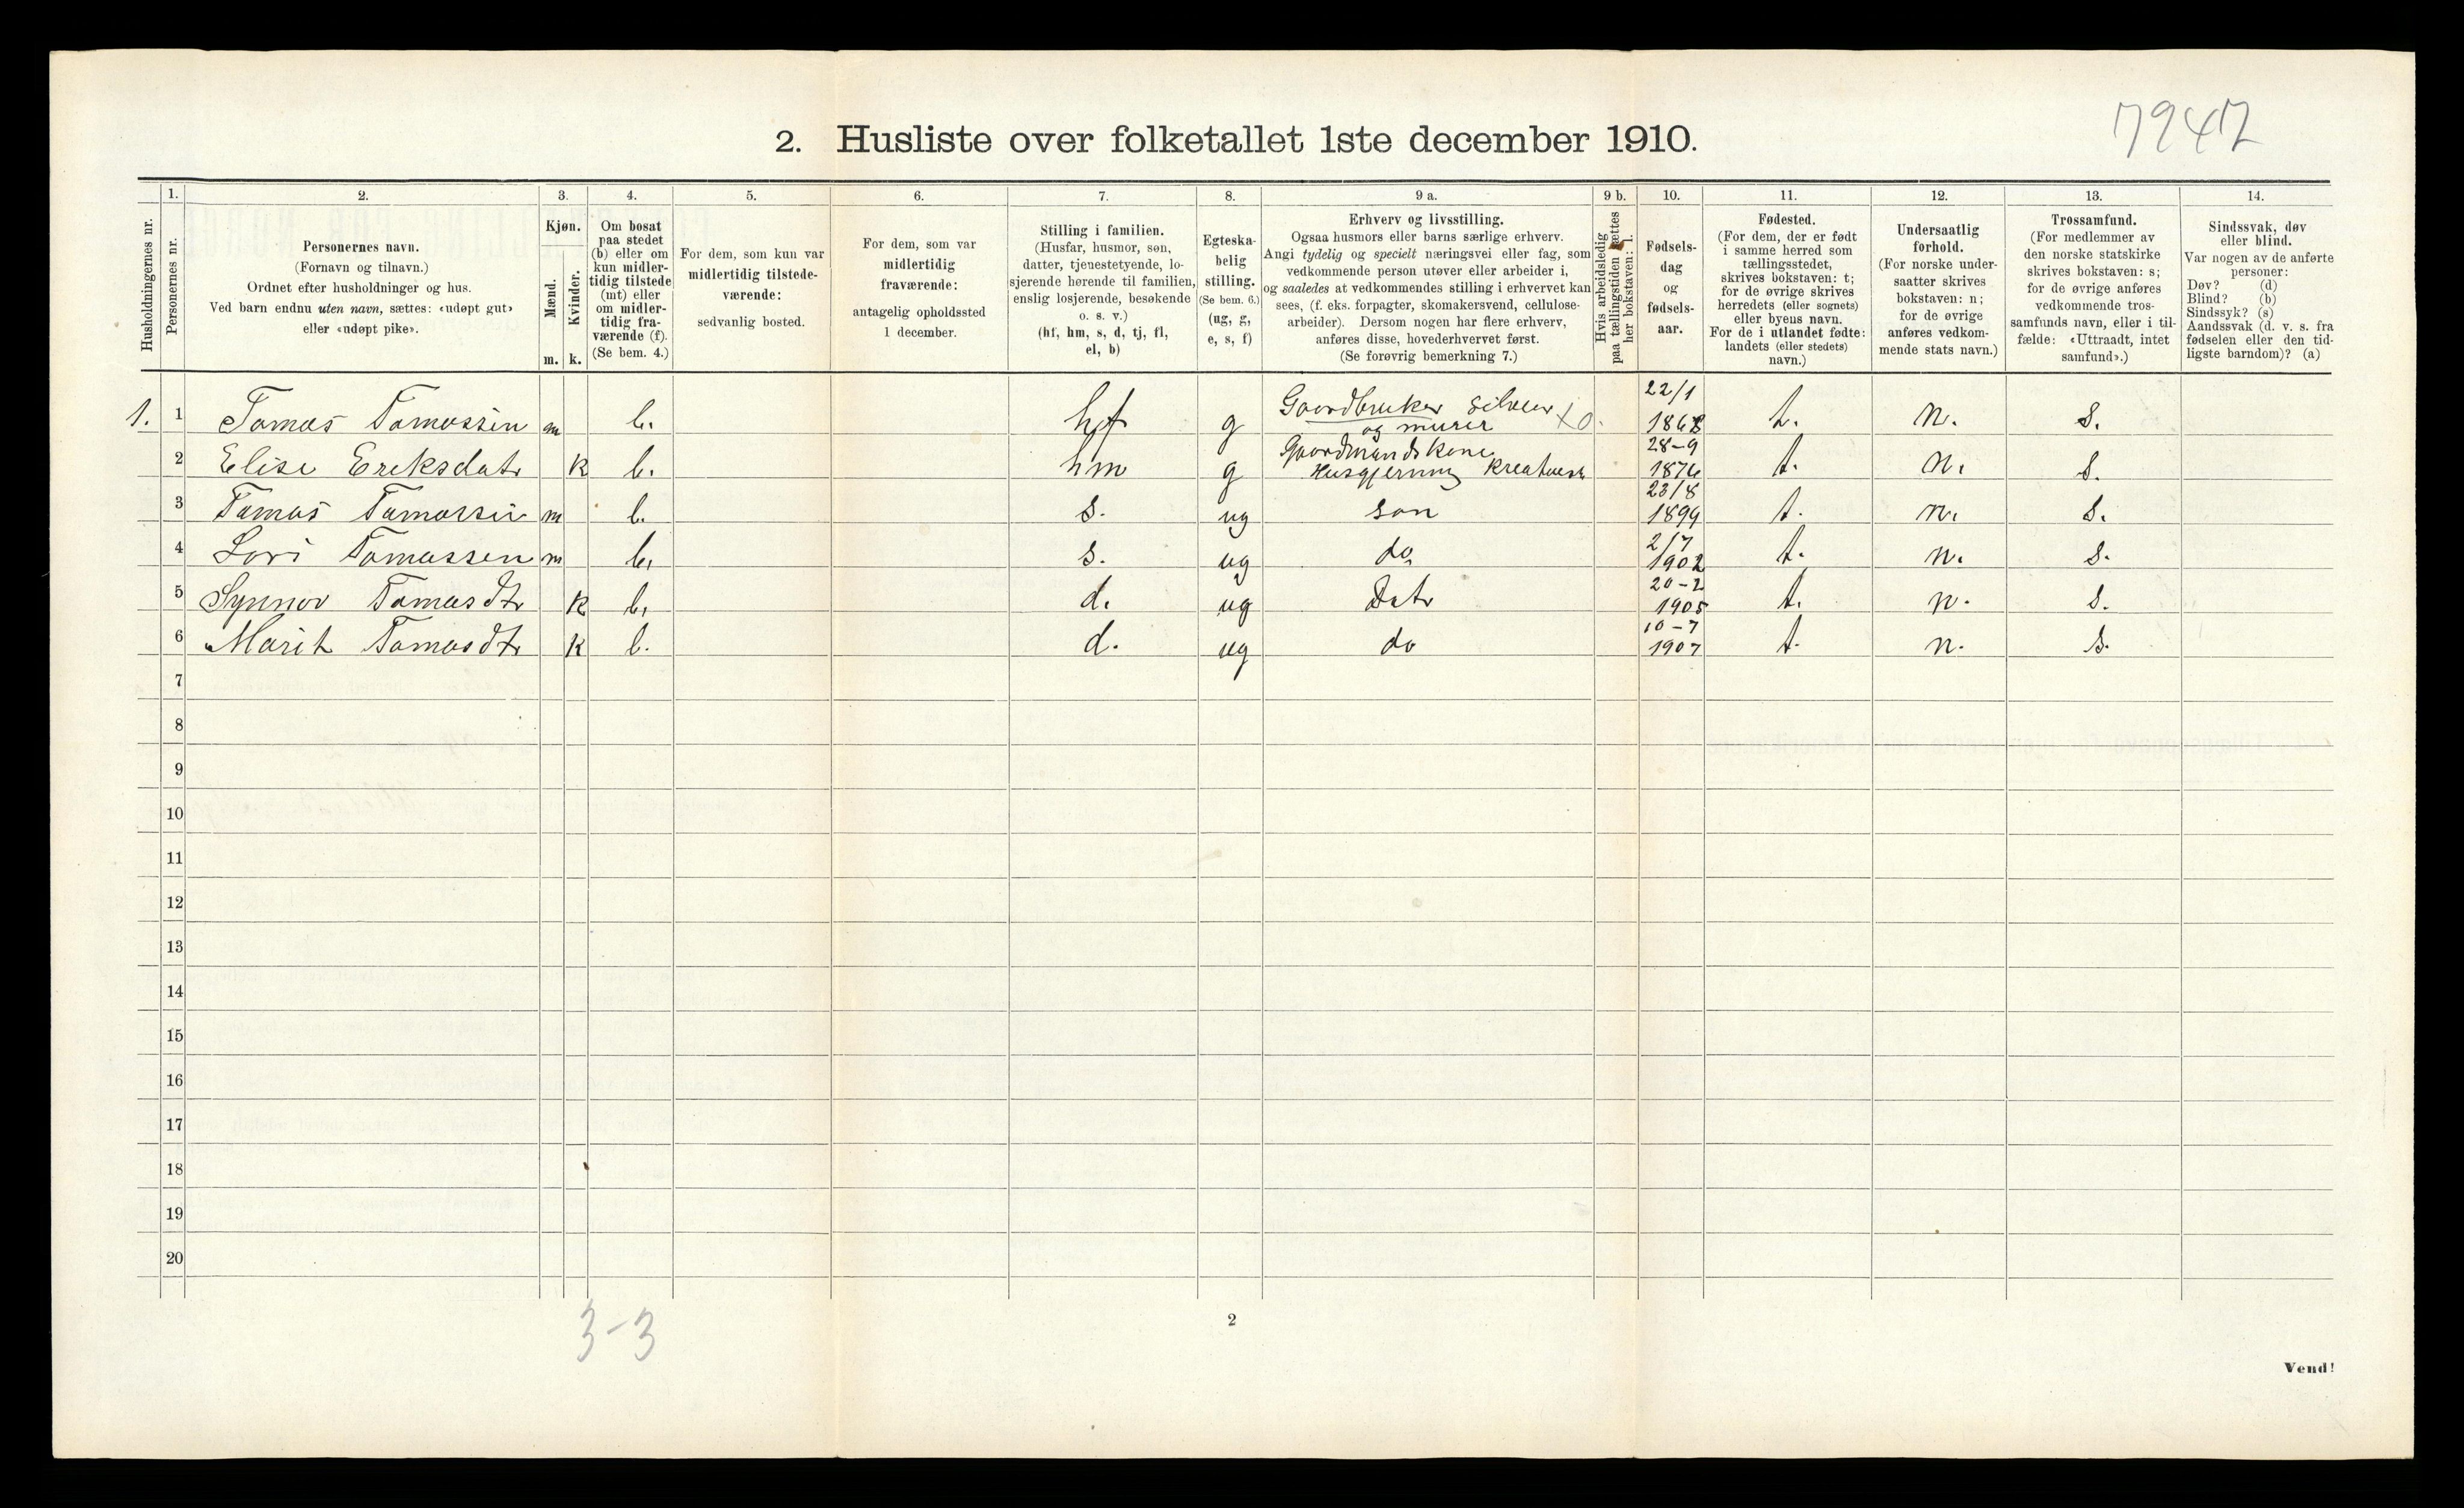 7947
2. Husliste over folketallet 1ste december 1910.
Husholdningernes nr.
1.
Personernes nr.
2.
Personernes navn.
(Fornavn og tilnavn.)
Ordnet efter husholdninger og hus.
Ved barn endnu uten navn, sættes: «udøpt gut»
eller «udøpt pike».
3.
Kjøn.
Mænd.
m.
Kvinder.
k.
4.
Om bosat
paa stedet
(b) eller om
kun midler-
tidig tilstede
(mt) eller
om midler-
tidig fra-
værende (f).
(Se bem. 4.)
5.
For dem, som kun var
midlertidig tilstede-
værende:
sedvanlig bosted.
6.
For dem, som var
midlertidig
fraværende:
antagelig opholdssted
1 december.
7.
Stilling i familien.
(Husfar, husmor, søn,
datter, tjenestetyende, lo-
sjerende hørende til familien,
enslig losjerende, besøkende
o. s. v.)
(hf, hm, s, d, tj, fl,
el, b)
8.
Egteska-
belig
stilling.
(Se bem. 6.)
(ug, g,
e, s, f)
9 a.
Erhverv og livsstilling.
Ogsaa husmors eller barns særlige erhverv.
Angi tydelig og specielt næringsvei eller fag, som
vedkommende person utøver eller arbeider i,
og saaledes at vedkommendes stilling i erhvervet kan
sees, (f. eks. forpagter, skomakersvend, cellulose-
arbeider). Dersom nogen har flere erhverv,
anføres disse, hovederhvervet først.
(Se forøvrig bemerkning 7.)
9 b.
Hvis arbeidsledig
paa tællingstiden sættes
her bokstaven: l.
10.
Fødsels-
dag
og
fødsels-
aar.
11.
Fødested.
(For dem, der er født
i samme herred som
tællingsstedet,
skrives bokstaven: t;
for de øvrige skrives
herredets (eller sognets)
eller byens navn.
For de i utlandet fødte:
landets (eller stedets)
navn.)
12.
Undersaatlig
forhold.
(For norske under-
saatter skrives
bokstaven: n;
for de øvrige
anføres vedkom-
mende stats navn.)
13.
Trossamfund.
(For medlemmer av
den norske statskirke
skrives bokstaven: s;
for de øvrige anføres
vedkommende tros-
samfunds navn, eller i til-
fælde: «Uttraadt, intet
samfund».)
14.
Sindssvak, døv
eller blind.
Var nogen av de anførte
personer:
Døv? (d)
Blind? (b)
Sindssyk? (s)
Aandssvak (d. v. s. fra
fødselen eller den tid-
ligste barndom)? (a)
1. 1 Tomas Tomassen m b. hf g Gaardbruker selveier og murer x0. 22/1 1868 t. n. s.
2 Elise Eriksdatr k b. hm g Gaardmandskone Husgjerning Kreaturst 28-9 1876 t. n. s.
3 Tomas Tomassen m b. s. ug søn 23/8 1899 t. n. s.
4 Tomassen m b. s. ug do 2/7 1902 t. n. s.
5 Synnøv Tomasdtr k b. d. ug Datr 20-2 1905 t. n. s.
6 Marit Tomasdtr k b. d. ug do 10-7 1907 t. n. s.
7
8
9
10
11
12
13
14
15
16
17
18
19
20
3-3
2
Vend!